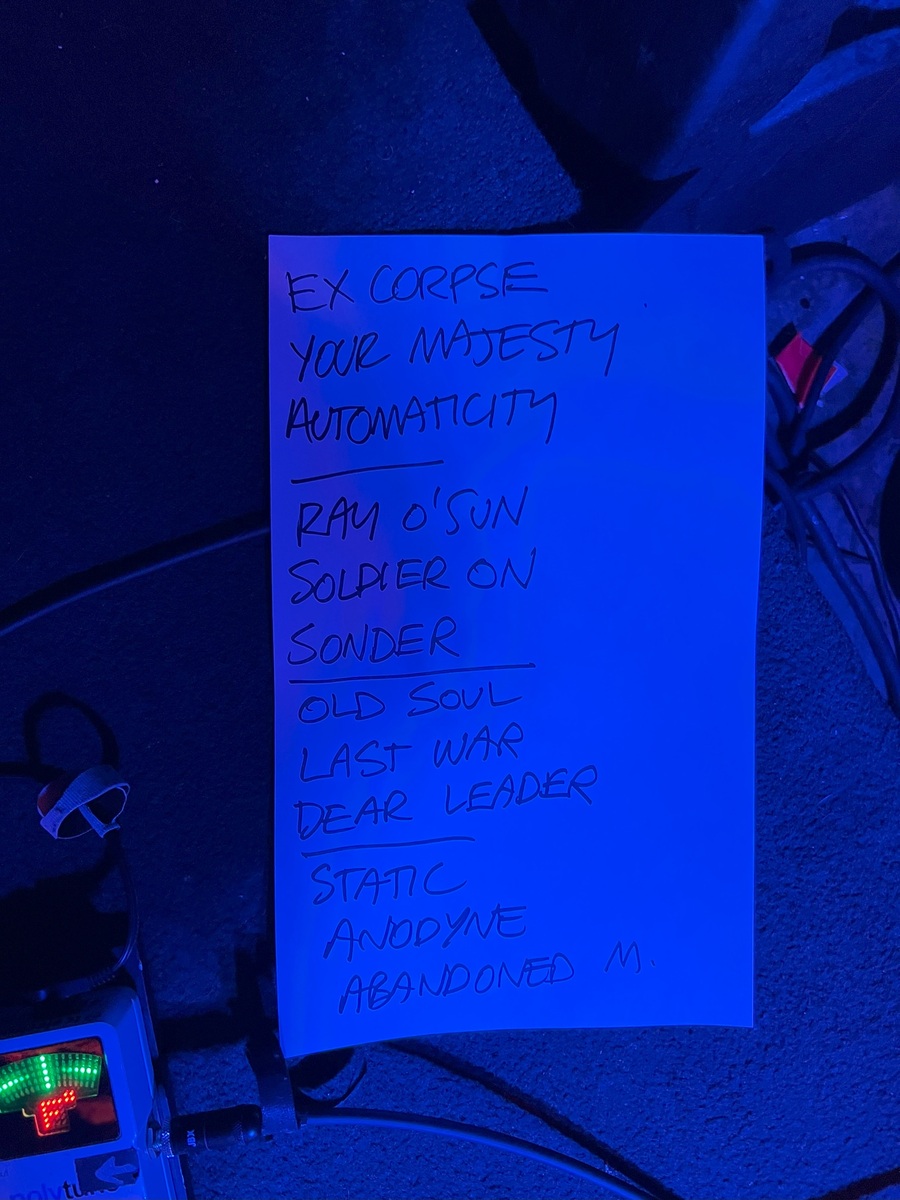 EX CORPSE
YOUR MAJESTY
AUTOMATICITY
RAY O'SUN
SOLDIER ON
SONDER
OLD SOUL
LAST WAR
DEAR LEADER
STATIC
ANODYNE
ABANDONED M.
polytune